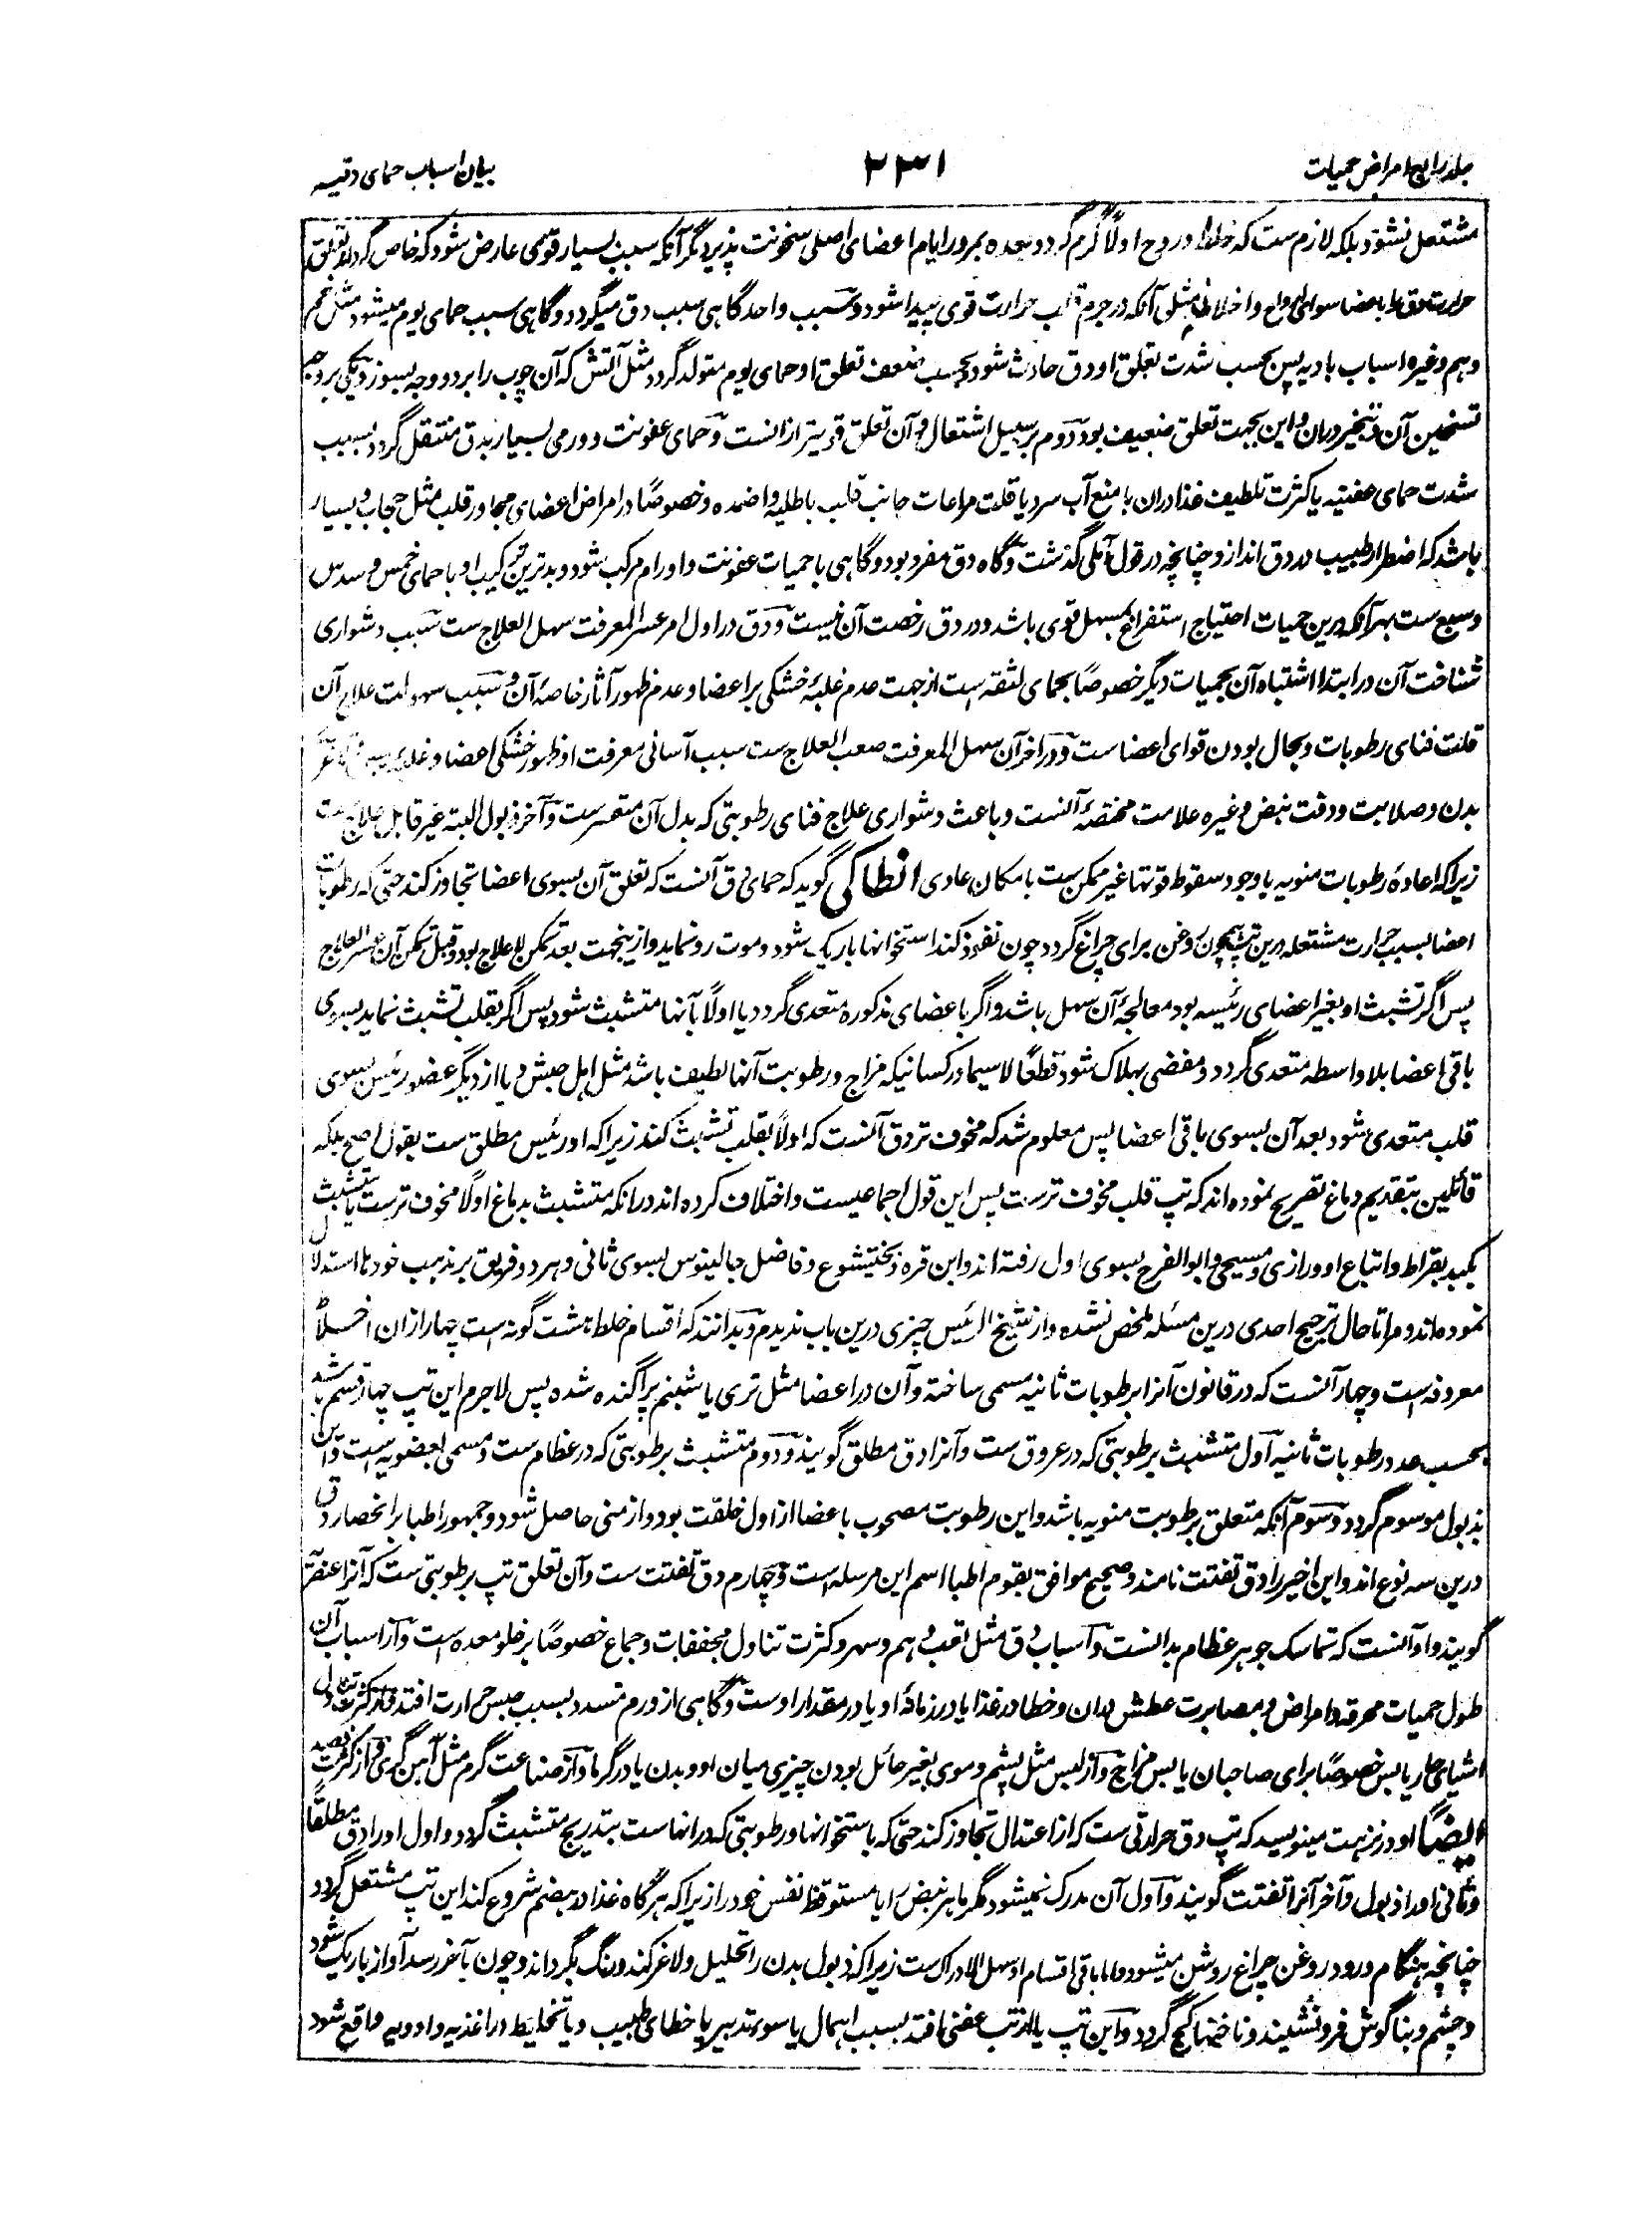 جلد رابع امراض حمیات
۲۳۱
بیان اسباب حمای دقیه
مشتعل نشود بلکه لازم ست که خلط و روح اولاً گرم گردد و بعده بمرور ایام اعضای اصلی سخونت پذیرد مگر آنکه سبب بسیار قوی عارض شود که خاص گرداند تعلق
حرارت دق را باعضا سوای ارواح و اخلاط مثل آنکه در جرم قلب حرارت قوی پیدا شود و سبب واحد گاهی سبب دق میگردد و گاهی سبب حمای یوم میشود مثل غم
و هم و غیره اسباب بادیه پس بحسب شدت تعلق او دق حادث شود و بحسب ضعف تعلق او حمای یوم متولد گردد مثل آتش که آن چوب را بر دو وجه بسوزد یکی بر وجه
تسخین آن و تبخیر دران و این بجهت تعلق ضعیف بود دوم بر سبیل اشتعال و آن تعلق قویتر ازانست و حمای عفونت و ورمی بسیار بدق منتقل گردد بسبب
شدت حمای عفنیه یا کثرت تلطیف غذا دران با منع آب سرد یا قلت مراعات جانب قلب باطلیه و اضمده و خصوصاً در امراض اعضای مجاور قلب مثل حجاب و بسیار
باشد که اضطرار طبیب در دق اندازد چنانچه در قول آملی گذشت و گاه دق مفرد بود و گاهی با حمیات عفونت و اورام مرکب شود و بدترین ترکیب او با حمای خمس و سدس
و سبع ست بهر آنکه درین حمیات احتیاج استفراغ بمسهل قوی باشد و در دق رخصت آن نیست و دق در اول امر عسر المعرفت سهل العلاج ست سبب دشواری
شناخت آن در ابتدا اشتباه آن بحمیات دیگر خصوصاً بحمای لثقه است از جهت عدم غلبهٔ خشکی بر اعضا و عدم ظهور آثار خاصهٔ آن و سبب سهولت علاج آن
قلت فنای رطوبات و بحال بودن قوای اعضا ست و در آخر آن سهل المعرفت صعب العلاج ست سبب آسانی معرفت او ظهور خشکی اعضا و
بدن و صلابت و دقت نبض و غیره علامت مختصهٔ آنست و باعث دشواری علاج فنای رطوبتی که بدل آن متعسر ست و آخر ذبول البته غیر قابل علاج ست
زیراکه اعادهٔ رطوبات منویه با وجود سقوط قوتها غیر ممکن ست بامکان عادی انطاکی گوید که حمای دق آنست که تعلق آن بسوی اعضا تجاوز کند حتی که رطوبات
اعضا بسبب حرارت مشتعله درین تپ همچون روغن برای چراغ گردد چون نفوذ کند استخوانها باریک شود و موت رو نماید و ازینجهت بعد تمکن لا علاج بود و قبل تمکن آن عسر العلاج
پس اگر تشبث او بغیر اعضای رئیسه بود معالجهٔ آن سهل باشد و اگر باعضای مذکوره متعدی گردد یا اولاً بآنها متشبث شود پس اگر بقلب تشبث نماید بسوی
باقی اعضا بلا واسطه متعدی گردد و مفضی بهلاک شود قطعاً لا سیما در کسانیکه مزاج و رطوبت آنها لطیف باشد مثل اهل حبش و یا از دیگر عضو رئیس بسوی
قلب متعدی شود بعد آن بسوی باقی اعضا پس معلوم شد که مخوف تر دق آنست که اولاً بقلب تشبث کند زیراکه او رئیس مطلق ست بقول اصح بلکه
قائلین بتقدیم دماغ تصریح نموده اند که تپ قلب مخوف ترست پس این قول اجماعیست و اختلاف کرده اند درانکه متشبث بدماغ اولاً مخوف ترست یا متشبث
بکبد بقراط و اتباع او و رازی و مسیحی و ابو الفرج بسوی اول رفته اند و ابن قره و بختیشوع و فاضل جالینوس بسوی ثانی و هر دو فریق بر مذهب خود ها استدلال
نموده اند و مرا تا حال ترجیح احدی درین مسئله ملخص نشده و از شیخ الرئیس چیزی درین باب ندیدم و بدانند که اقسام خلط هشت گونه است چهار ازان اخلاط
معروفه است و چهار آنست که در قانون آنرا برطوبات ثانیه مسمی ساخته و آن در اعضا مثل تری یا شبنم پراگنده شده پس لاجرم این تپ چهار قسم باشد
بحسب عدد رطوبات ثانیه اول متشبث برطوبتی که در عروق ست و آنرا دق مطلق گویند و دوم متشبث برطوبتی که در عظام ست و مسمی بعضویه است و این
بذبول موسوم گردد و سوم آنکه متعلق برطوبت منویه باشد و این رطوبت مصحوب باعضا از اول خلقت بود و از منی حاصل شود و جمهور اطبا بر انحصار دق
درین سه نوع اند و این اخیر را دق تفتت نامند و صحیح موافق بقوم اطبا اسم این مرسله است و چهارم دق تفتت ست و آن تعلق تپ برطوبتی ست که آنرا
گویند و او آنست که تماسک جوهر عظام بدانست و اسباب دق مثل تعب و هم و سهر و کثرت تناول مجففات و جماع خصوصاً بر خلو معده است و از اسباب آن
طول حمیات محرقه و امراض و مصابرت عطش دران و خطا در غذا یا در زمانهٔ او یا در مقدار اوست و گاهی از ورم مسدد بسبب حبس حرارت افتد و از کثرت تناول
اشیای حار یابس خصوصاً برای صاحبان یابس مزاج و از لبس مثل پشم و موی بغیر حائل بودن چیزی میان او و بدن یا در گرما و از صناعت گرم مثل آهن گری و از کثرت فصد
ایضاً او در نزهت مینویسد که تپ دق حرارتی ست که از اعتدال تجاوز کند حتی که باستخوانها و رطوبتی که درانهاست بتدریج متشبث گردد و اول او را دق مطلقاً
و ثانی او را ذبول و آخر آنرا تفتت گویند و اول آن مدرک نمیشود مگر ماهر نبض را یا مستوقظ نفس خود را زیراکه هرگاه غذا در هضم شروع کند این تپ مشتعل گردد
چنانچه هنگام ورود روغن چراغ روشن میشود و اما باقی اقسام او سهل الادراک ست زیراکه ذبول بدن را تحلیل و لاغر کند و رنگ بگرداند و چون بآخر رسد آواز باریک شود
و چشم و بناگوش فرو نشیند و ناخنها کج گردد و این تپ یا از تپ عفنی افتد بسبب اهمال یا سوء تدبیر یا خطای طبیب و یا تخلیط در اغذیه و ادویه واقع شود